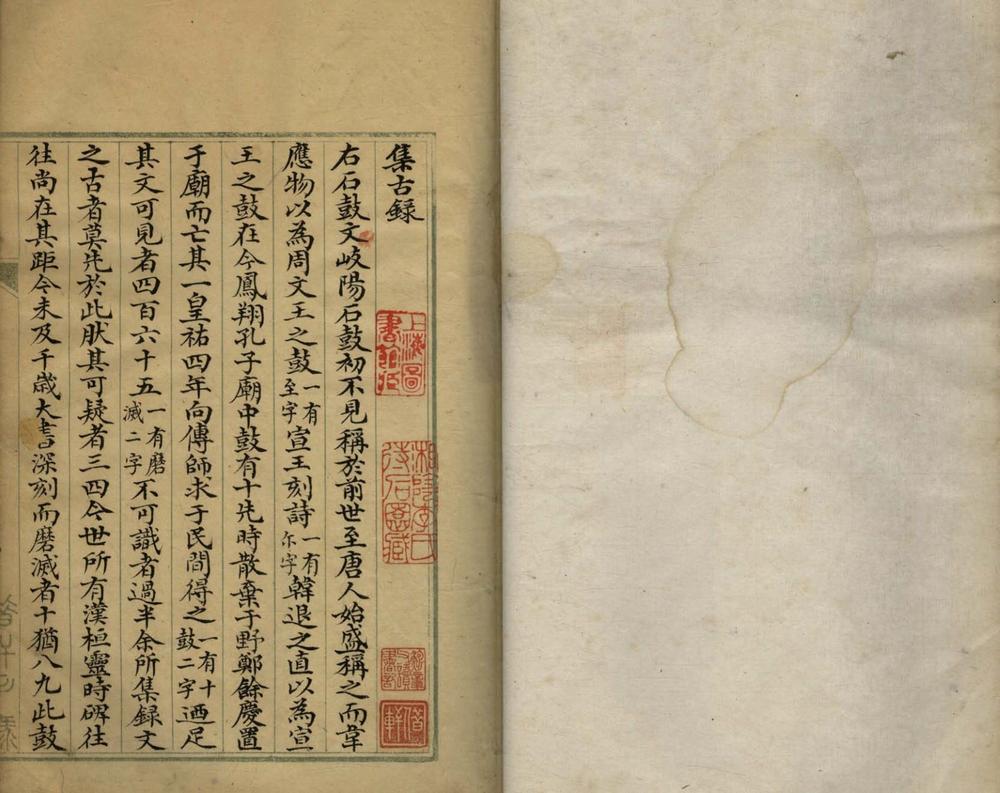 集古録
右石鼓文岐陽石鼓初不見稱於前世至唐人始盛稱之而韋
應物以為周文王之鼓一有至字宣王刻詩一有尒字韓退之直以為宣
王之鼓在今鳳翔孔子廟中鼓有十先時散棄于野鄭餘慶置
于廟而亡其一皇祐四年向傳師求于民間得之一有十鼓二字迺足
其文可見者四百六十五一有磨滅二字不可識者過半余所集録文
之古者莫先於此肰其可疑者三四今世所有漢桓靈時碑往
往尚在其距今未及千歲大書深刻而磨滅者十猶八九此鼓
上海圖書館藏
湘陰李氏
待石園藏